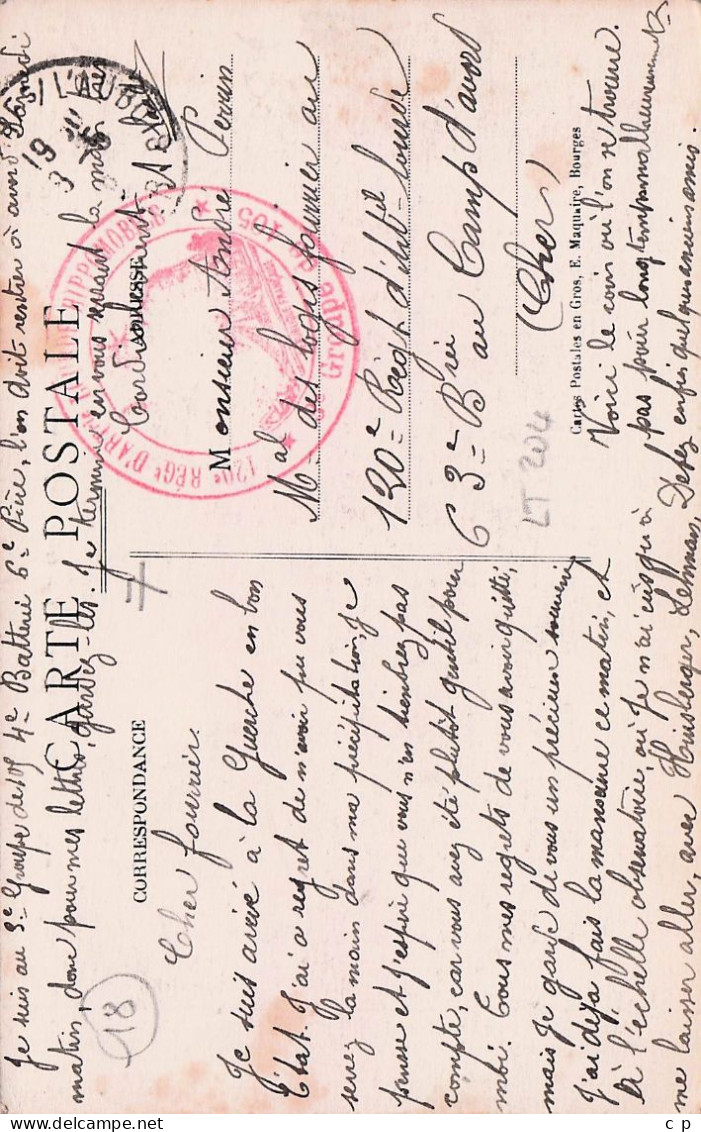 CARTE POSTALE
CORRESPONDANCE
ADRESSE
Cher fourrier.
Je suis arrivé à la Guerche en bon
état. J'ai à regret de n'avoir pu vous
serrez la main dans ma précipitation, je
pense et j'espère que vous n'en tiendrez pas
compte, car vous avez été plutôt gentil pour
moi. Tous mes regrets de vous avoir quitté,
mais je garde de vous un précieux souvenir
J'ai déjà fais la manœuvre ce matin, et
à l'échelle observatoire, où je n'ai eu qu'à
me laisser aller, avec Lehman,
enfin quelques anciens amis.
Voici le coin où l'on se trouve.
pas pour longtemps malheureusement
Je suis au 3e Groupe de 105 4e Batterie 6e Pièce, l'on doit rentrer à avord Samedi
matin, donc pour mes lettres, gardez-les. Je termine en vous serrant la main
Cordialement.
Monsieur André Perrin
Mal des logis fourrier au
120e Régt d'Art-lourde
63e Brie au Camp d'avord
(Cher)
Cartes Postales en Gros, E. Maquaire, Bourges
120e RÉGt D'ARTIE LOURDE HIPPOMOBILE
3e Groupe de 105
S/ L'AUBOIS
19
3
LT 204
18
c p